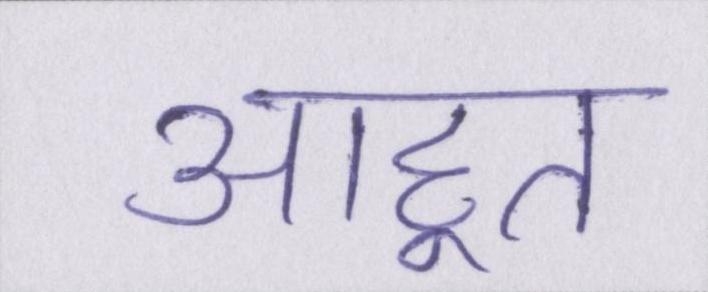 आहूत